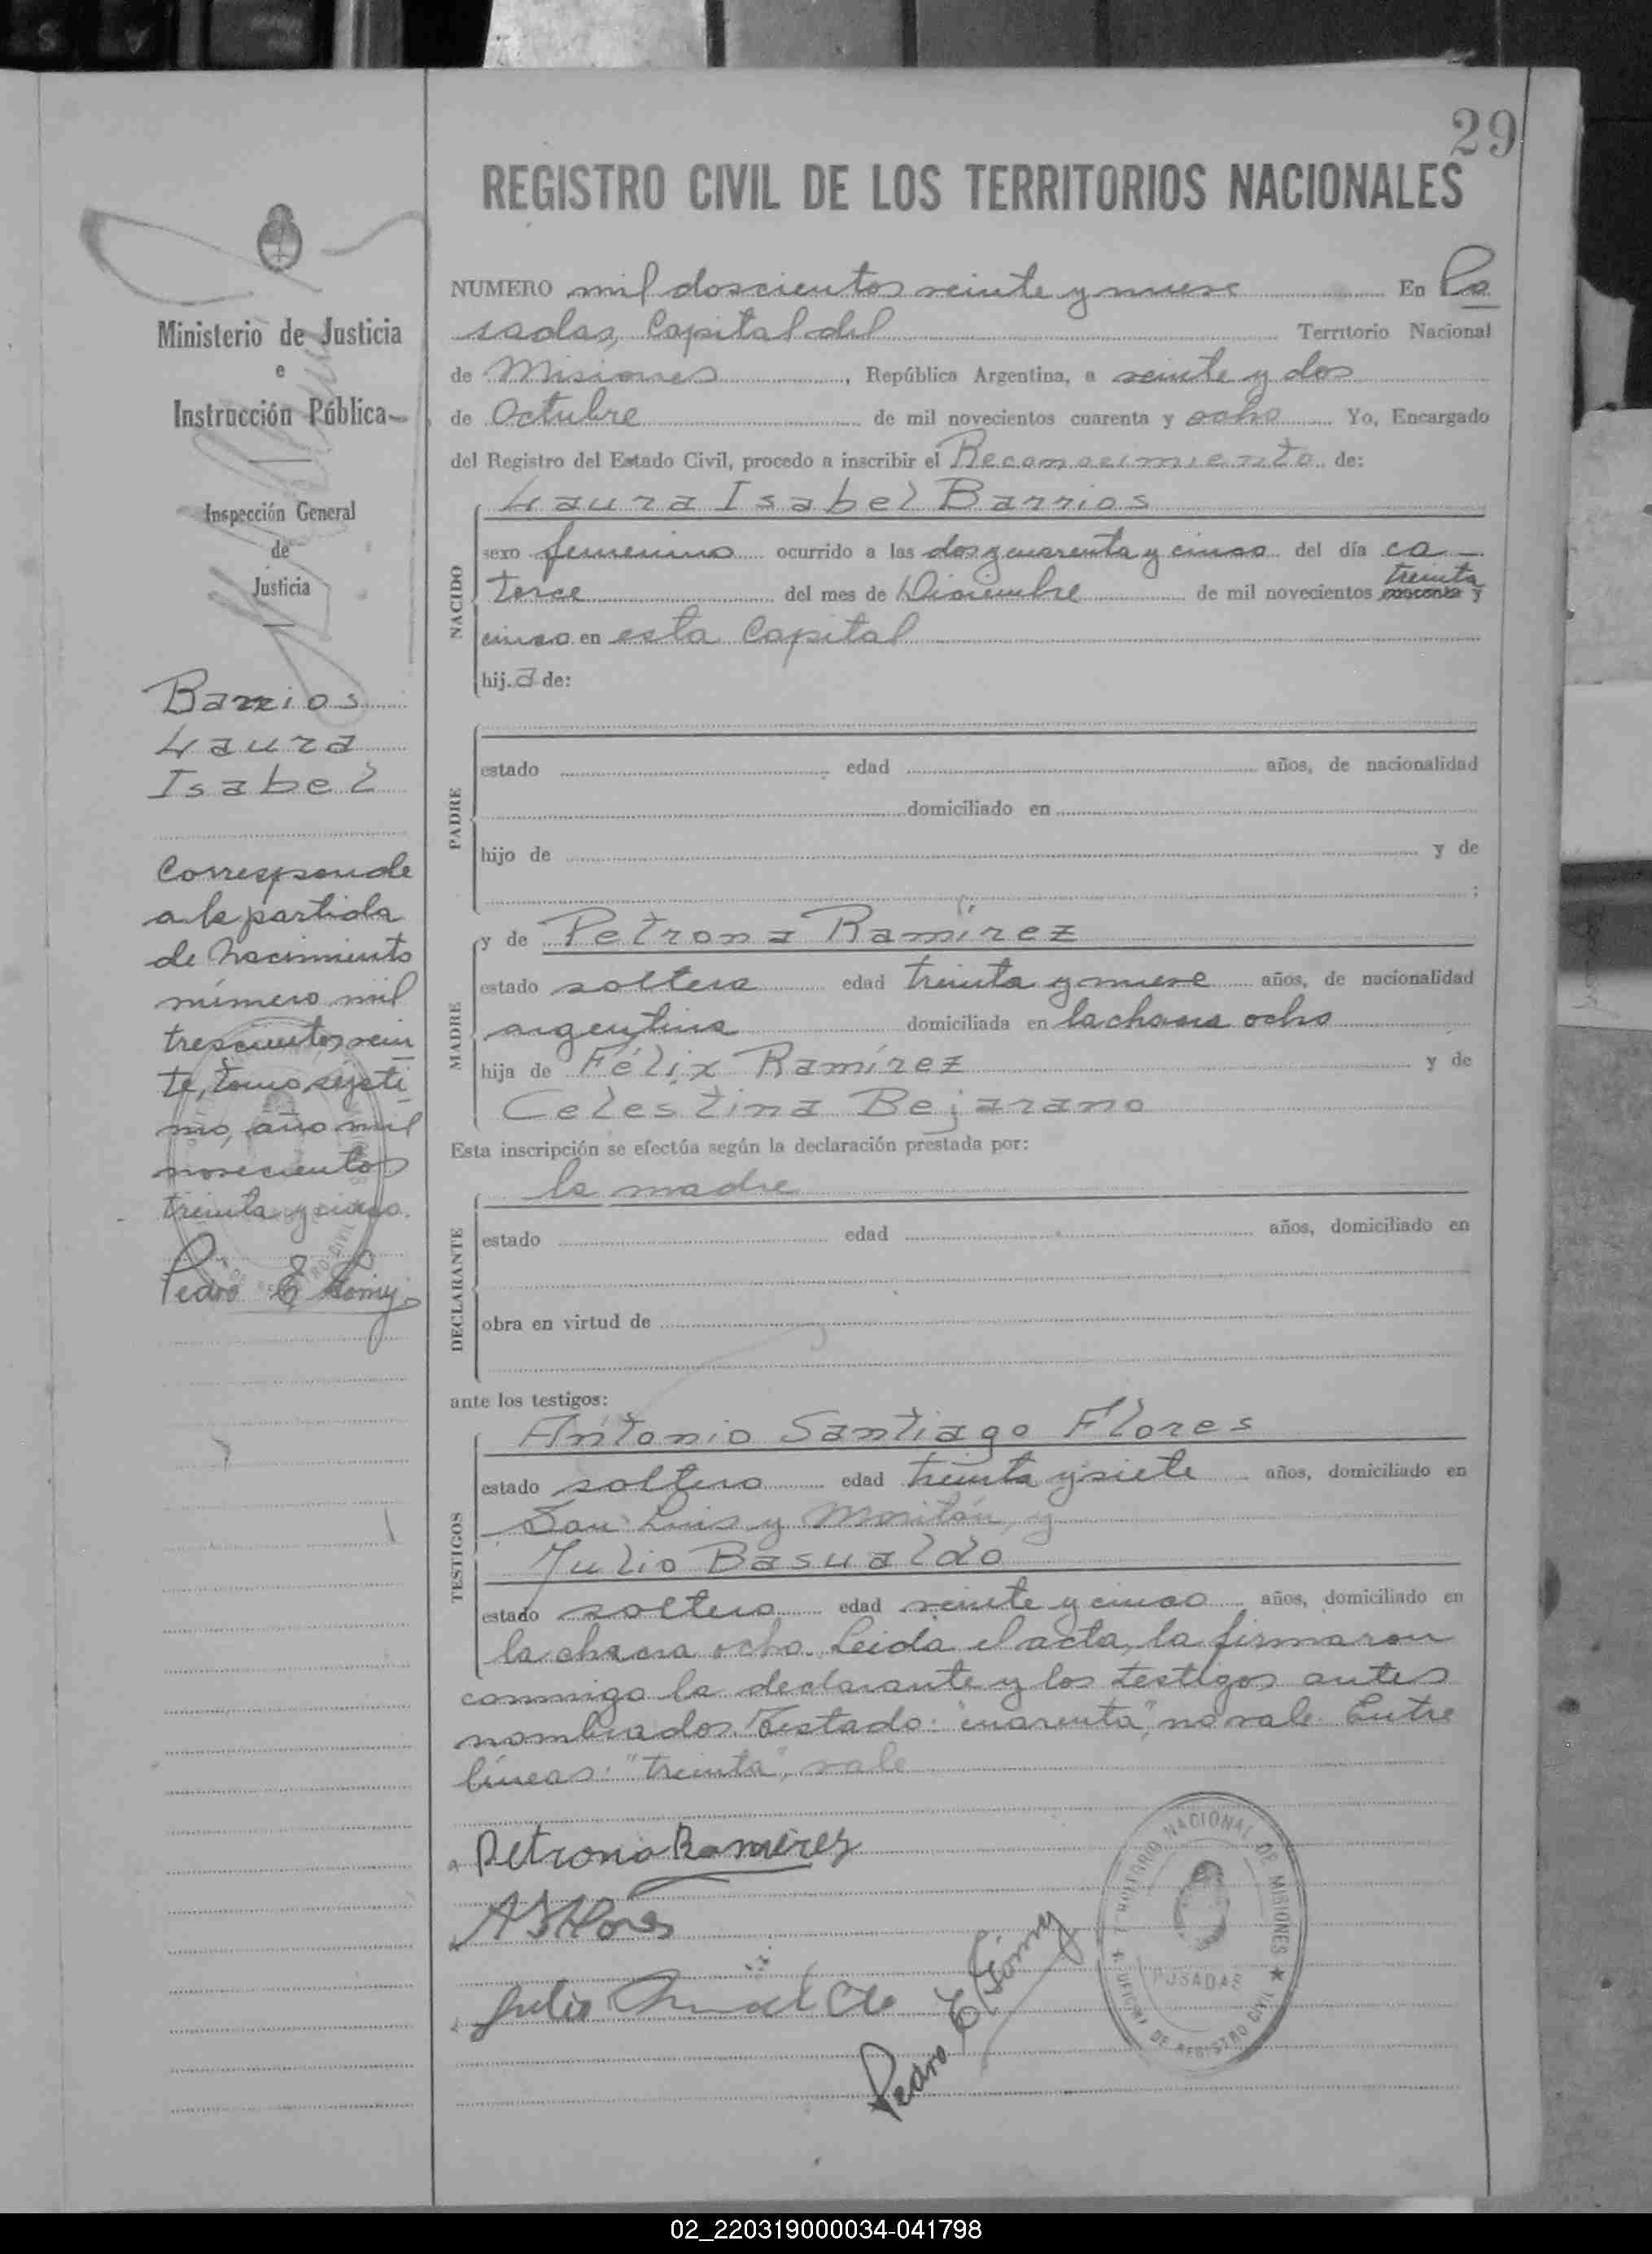 29
REGISTRO CIVIL DE LOS TERRITORIOS NACIONALES
Ministerio de Justicia
e
Instrucción Pública
Inspección General
de
Justicia
Barrios
Laura
Isabel
Corresponde
a la partida
de Nacimiento
número mil
trescientos vein
te, tomo septi
mo, año mil
novecientos
treinta y cinco.
Pedro E
NUMERO mil doscientos veinte y nueve En Po
sadas, Capital del Territorio Nacional
de Misiones, República Argentina, a veinte y dos
de Octubre de mil novecientos cuarenta y ocho Yo, Encargado
del Registro del Estado Civil, procedo a inscribir el Reconocimiento de:
NACIDO
Laura Isabel Barrios
sexo femenino ocurrido a las dos y cuarenta y cinco del día ca
torce del mes de Diciembre de mil novecientos cuarenta treinta y
cinco en esta Capital
hij.a de:
PADRE
estado edad años, de nacionalidad
domiciliado en
hijo de y de
;
MADRE
y de Petrona Ramírez
estado soltera edad treinta y nueve años, de nacionalidad
argentina domiciliada en la chacra ocho
hija de Félix Ramírez y de
Celestina Bejarano
Esta inscripción se efectúa según la declaración prestada por:
DECLARANTE
la madre
estado edad años, domiciliado en
obra en virtud de
ante los testigos:
TESTIGOS
Antonio Santiago Flores
estado soltero edad treinta y siete años, domiciliado en
San Luis y y
Julio Basualdo
estado soltero edad veinte y cinco años, domiciliado en
la chacra ocho. Leida el acta, la firmaron
conmigo la declarante y los testigos antes
nombrados. Testado: "cuarenta", no vale. Entre
líneas: "treinta", vale
Petrona Ramirez
A S Flores
Julio
Pedro E
TERRITORIO NACIONAL DE MISIONES
POSADAS
OFICINA DE REGISTRO CIVIL
02_220319000034-041798